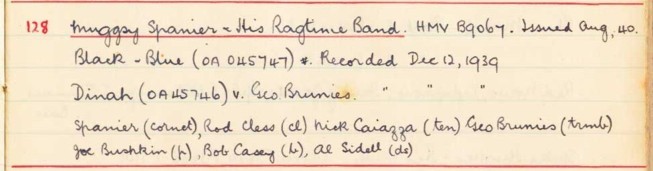 128 Muggsy Spanier & His Ragtime Band. HMV B9067. Issued Aug, 40.
Black - Blue (OA 045747) *. Recorded Dec 12, 1939
Dinah (OA45746) v. Geo Brunies. " " "
Spanier (cornet), Rod Cless (cl) Nick Caiazza (ten) Geo Brunies (trmb)
Joe Bushkin (p), Bob Casey (b), Al Sidell (ds)